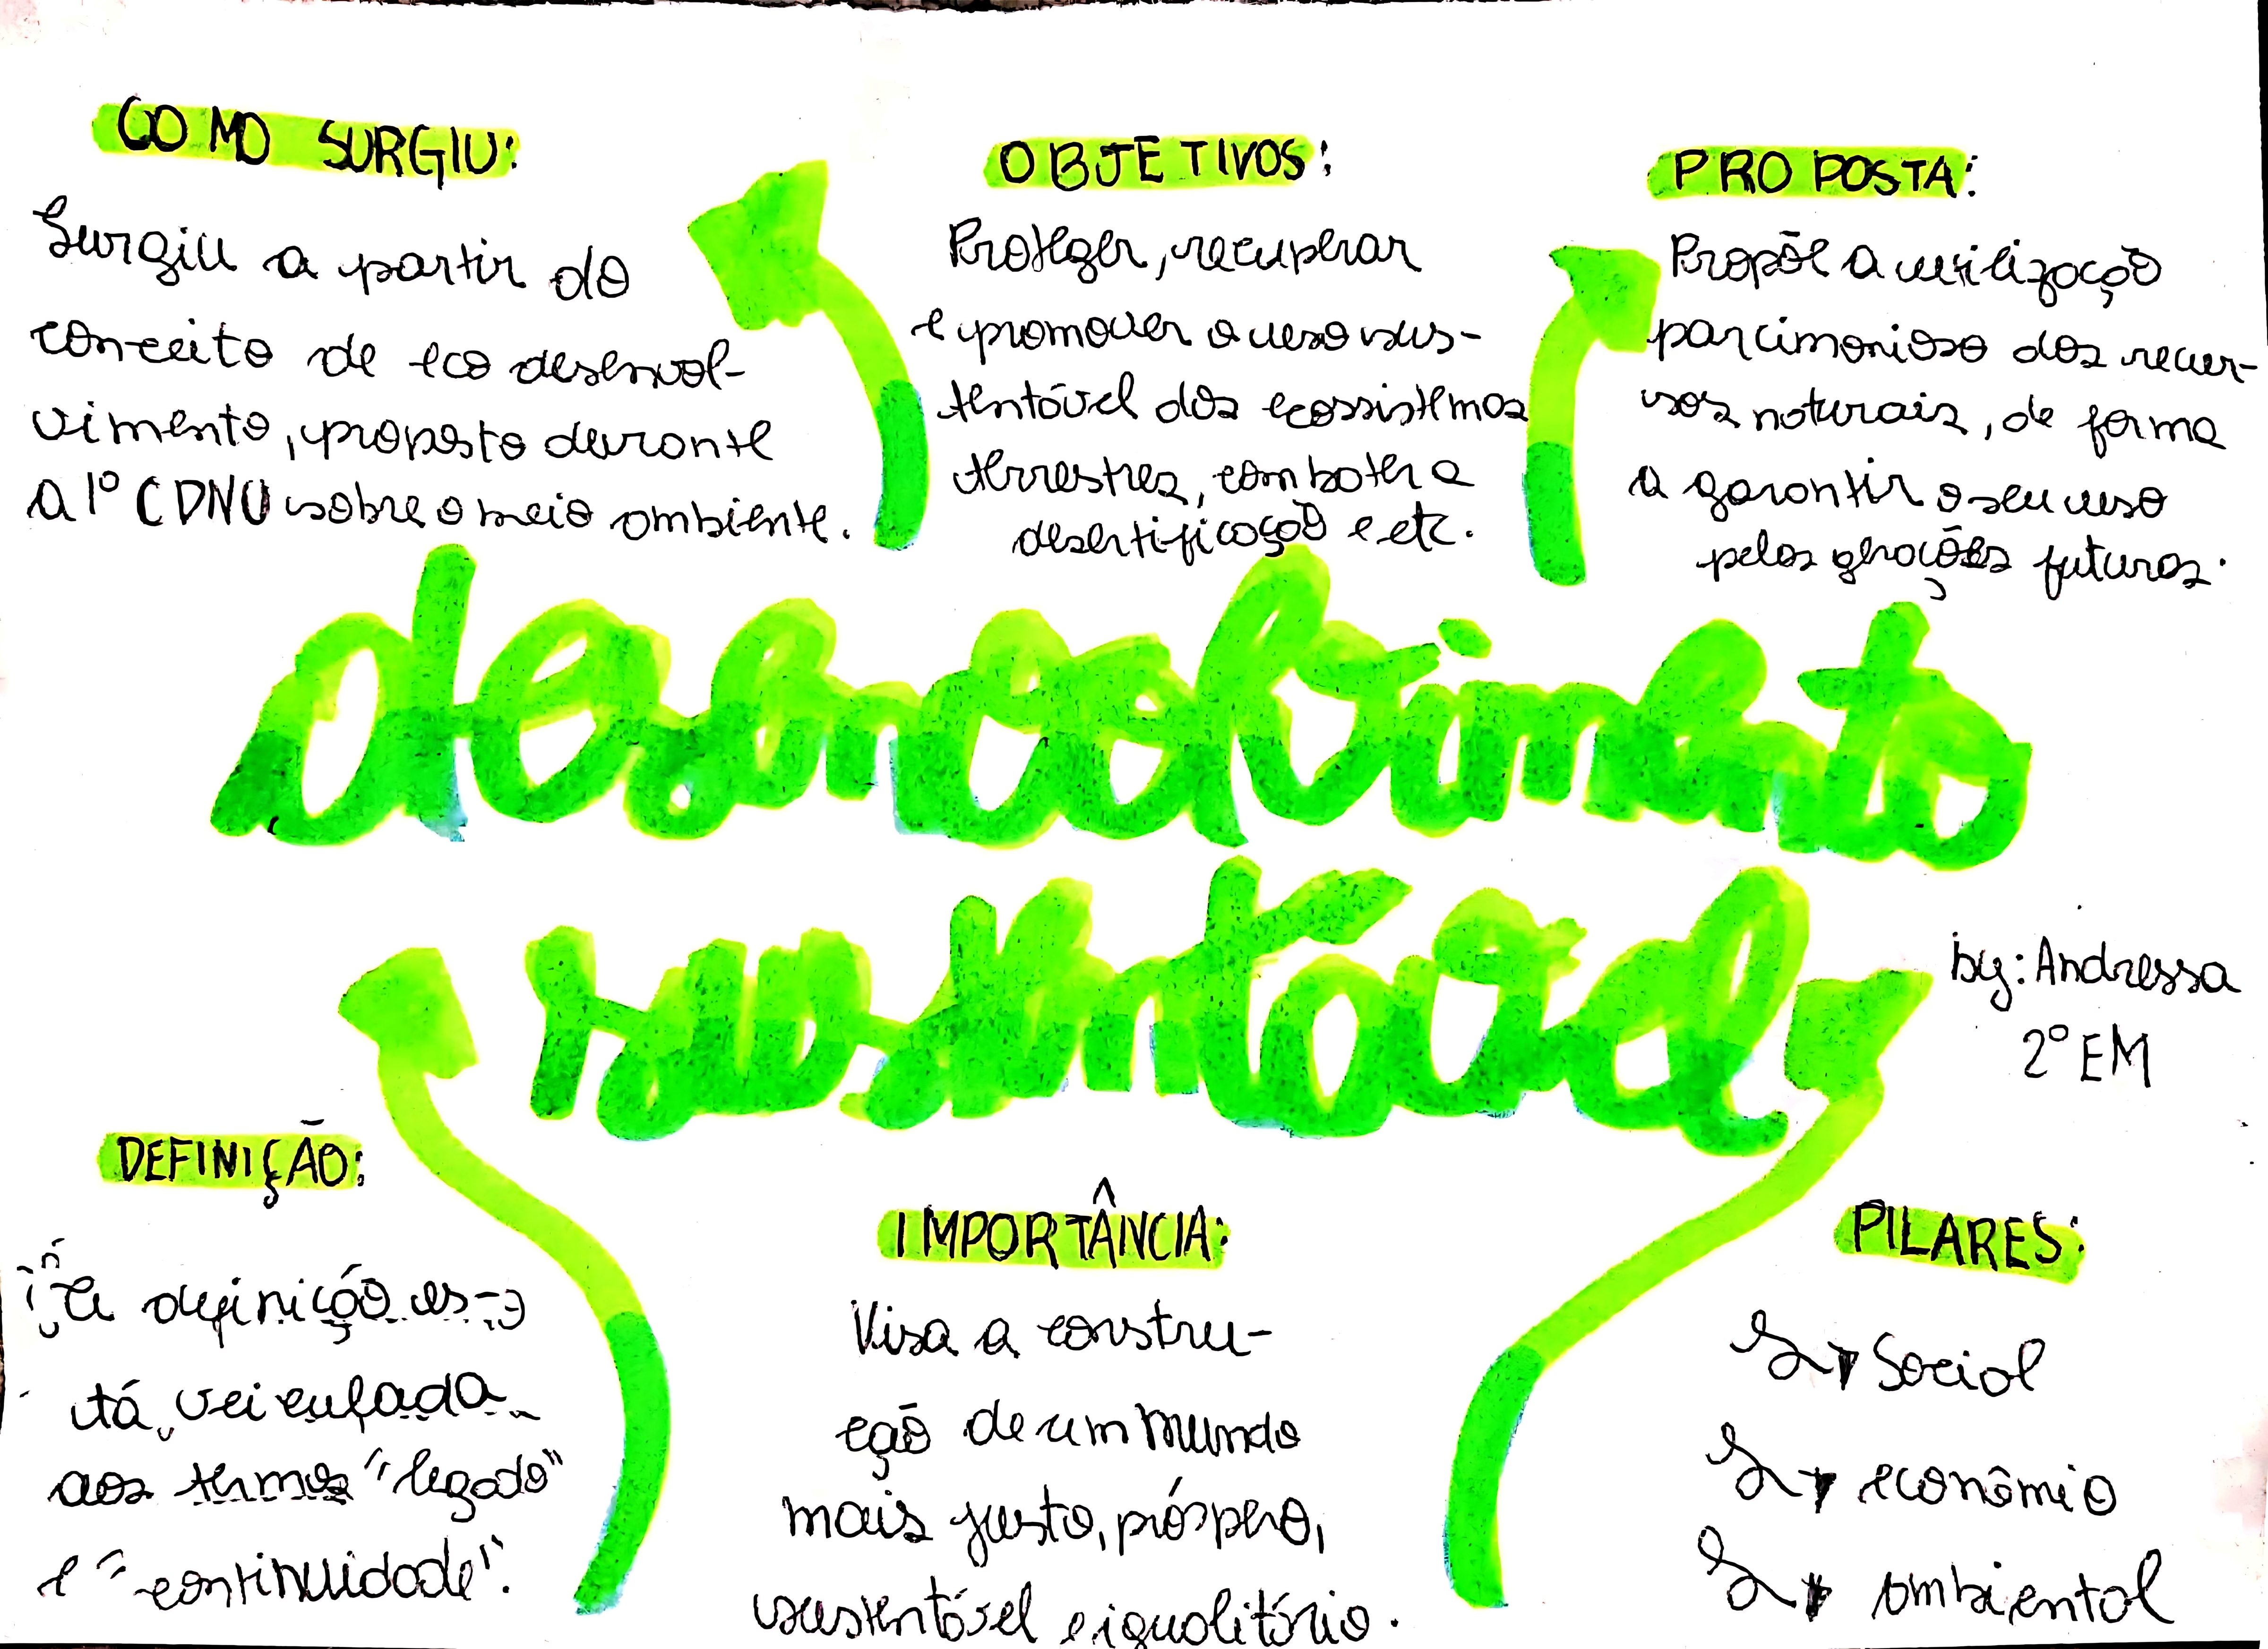 COMO SURGIU:
Surgiu a partir do
conceito de eco desenvol-
vimento, proposto durante
a 1º CDNU sobre o meio ambiente.
OBJETIVOS:
Proteger, recuperar
e promover o uso sus-
tentável dos ecossistemas
terrestres, combater a
desertificação e etc.
PROPOSTA:
Propõe a utilização
parcimonioso dos recur-
sos naturais, de forma
a garantir o seu uso
pelas gerações futuras.
desenvolvimento
sustentável
by: Andressa
2º EM
DEFINIÇÃO:
a definição es-
tá veiculada
aos termos "legado"
e "continuidade".
IMPORTÂNCIA:
Visa a constru-
ção de um mundo
mais justo, próspero,
sustentável e igualitário.
PILARES:
Social
econômio
ambiental